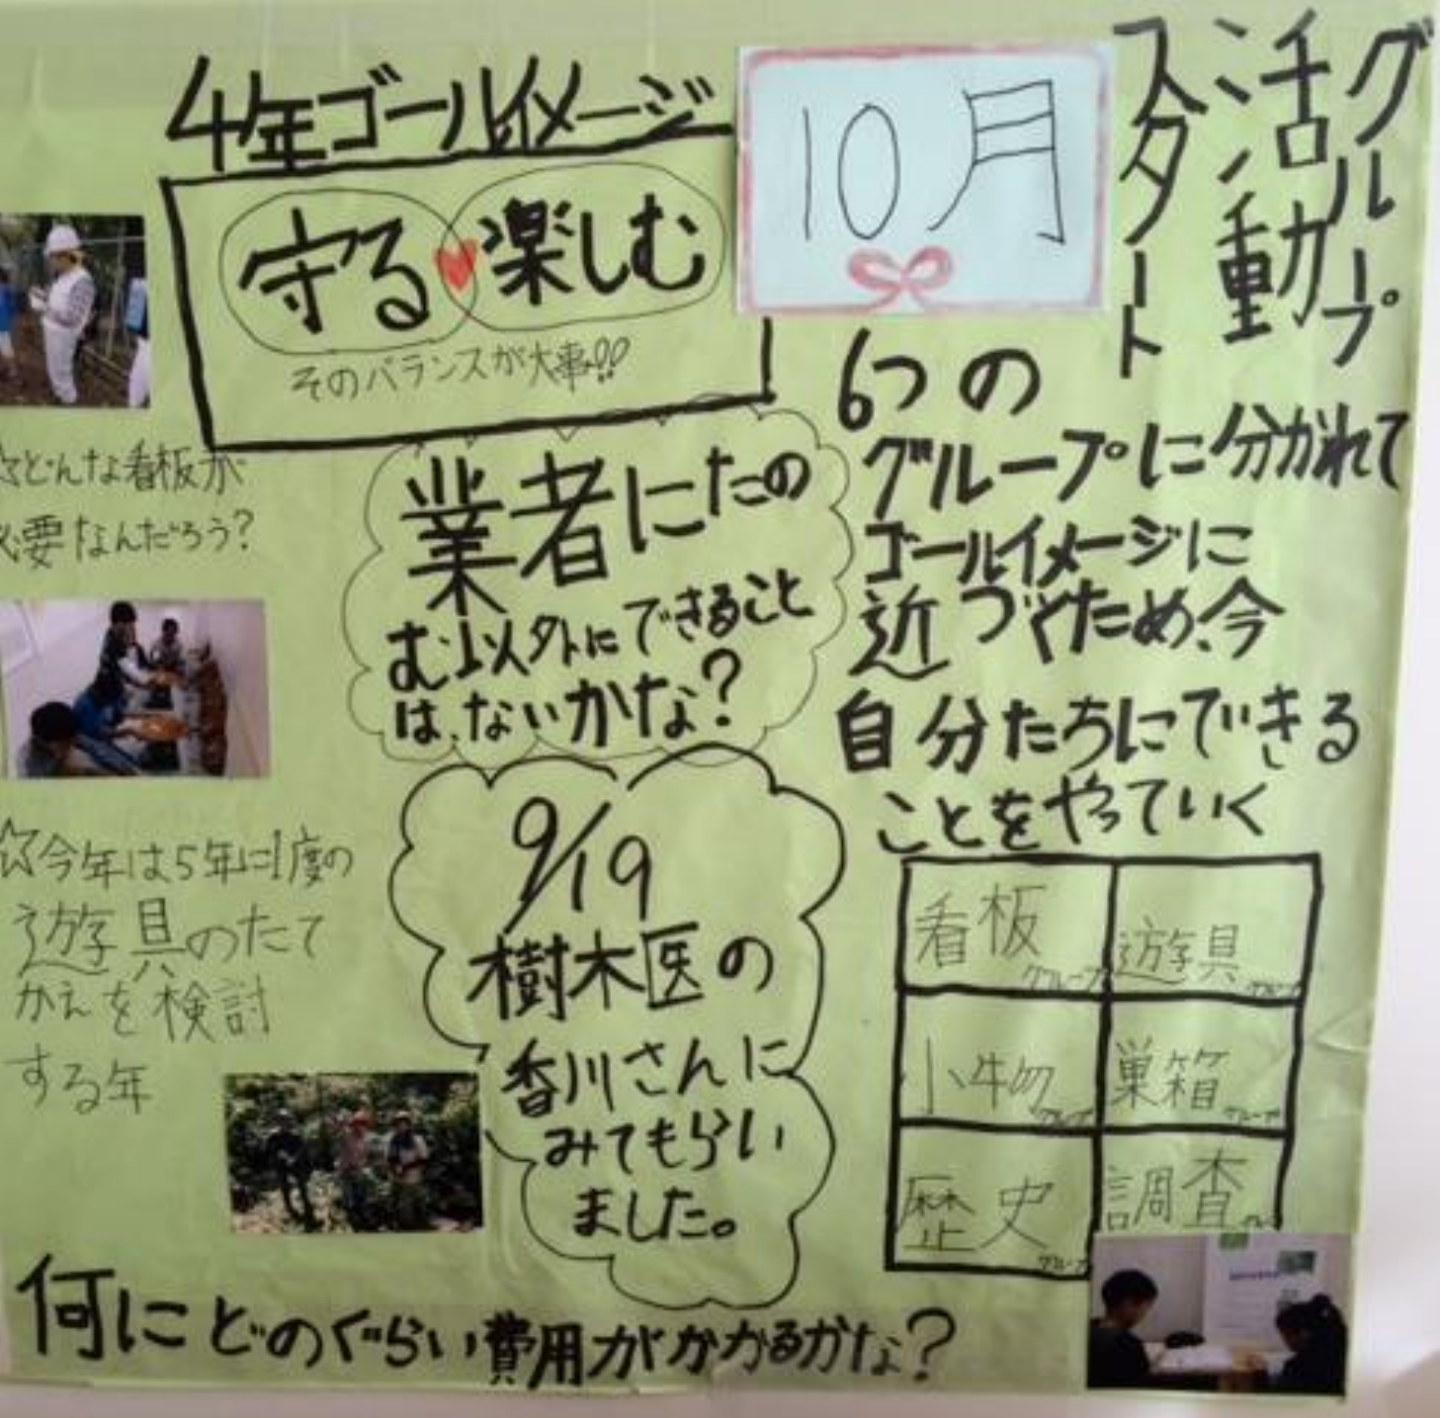 4年ゴールイメージ
守る♥楽しむ
そのバランスが大事!!
10月
グループ
活動
スタート
6つの
グループに分かれて
ゴールイメージに
近づくため、今
自分たちにできる
ことをやっていく
☆どんな看板が
必要なんだろう?
業者にたの
む以外にできること
は、ないかな?
☆今年は5年に1度の
遊具のたて
かえを検討
する年
9/19
樹木医の
香川さんに
みてもらい
ました。
看板グループ
遊具グループ
小物グループ
巣箱グループ
歴史グループ
調査
何にどのぐらい費用がかかるかな?